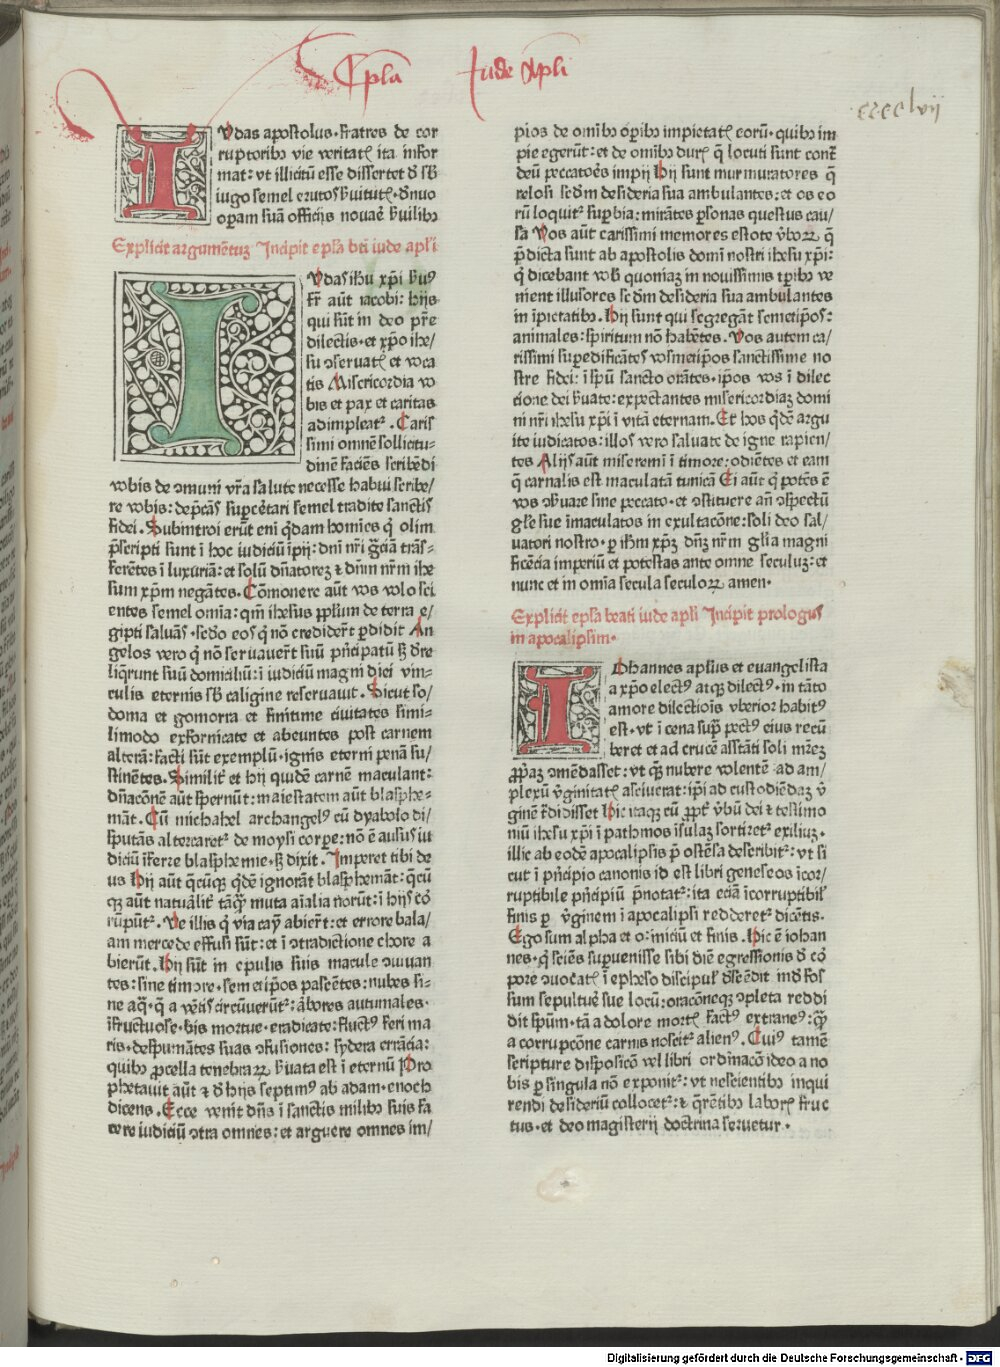 Epla Jude Apli
cccclvij
Udas apostolus fratres de cor
ruptoribꝰ vie veritatꝭ ita infor
mat: vt illicitū esse disseret ð sb
iugo semel erutos ẜuitutꝭ. ðnuo
opam suā officijs nouae ẜuilibꝰ
Explicit argumētuꝫ Jncipit epl'a bti iude apl'i
Udas ihu xp̄i ẜuꝰ
fr̄ aūt iacobi: hijs
qui sūt in deo pr̄e
dilectis. et xp̄o ihe/
su ↄseruatꝭ et voca
tis Misericordia vo
bis et pax et caritas
adimpleatꝛ. Caris
simi omnē sollicitu=
dinē faciēs scribēdi
vobis de ↄmuni vr̄a salute necesse habui scribe/
re vobis: dep̄cās supcētari semel tradite sanctis
fidei. Subintroi erūt eni q̄dam homīes q̄ olim
p̄scripti sunt ī hoc iudiciū īpij: dn̄i nr̄i gr̄ciā trās=
ferētes ī luxuriā: et solū dn̄atoreꝫ ⁊ dn̄m nr̄m ihe
sum xp̄m negātes. Cōmonere aūt vos volo sci
entes semel omīa: qm̄ ihesus pplum de terra e/
gipti saluās. secdo eos q̄ nō credider̄t pdidit An
gelos vero q̄ nō seruauer̄t suū pn̄cipatū sꝫ ðre
liq̄runt suū domiciliū: ī iudiciū magni diei vin/
culis eternis sb caligine reseruauit. Sicut so/
doma et gomorra et finitime ciuitates simi=
limodo exfornicate et abeuntes post carnem
alterā: facti sūt exemplū. ignis eterni penā su/
stinētes. Similit̄ et hij quidē carnē maculant:
dn̄acōnē aūt spernūt: maiestatem aūt blasphe=
māt. Cū michahel archangelꝰ cū dyabolo di/
sputās altercaretꝛ de moysi corpe: nō ē ausus iu
diciū īferre blasphemie. sꝫ dixit. Imperet tibi de
us Hij aūt q̄cūqꝫ q̄dē ignorāt blasphemāt: q̄cū
qꝫ aūt natuālit̄ tāqꝫ muta aīalia norūt: ī hijs cor
rūpūtꝛ. Ve illis q̄ via cayn abier̄t: et errore bala/
am mercede effusi sūt: et ī ↄtradictione chore a
bierūt. Hij sūt in epulis suis macule ↄuiuan
tes: sine timore. semetipos pascētes: nubes si=
ne aqꝫ. q̄ a vētis circūuerūtꝛ: arbores autumales.
īfructuose. bis mortue. eradicate: fluctꝰ feri ma
ris. despumātes suas ↄfusiones: sydera errācia:
quibꝰ pcella tenebraꝝ ẜuata est ī eternū Pro
phetauit aūt ⁊ ð hijs septimꝰ ab adam. enoch
dicens. Ecce venit dn̄s ī sanctis milibꝰ suis fa
cere iudiciū ↄtra omnes: et arguere omnes im/
pios de omībꝰ opibꝰ impietatꝭ eorū. quibꝰ im
pie egerūt: et de omībꝰ durꝭ q̄ locuti sunt cont̄
deū peccatoēs impij Hij sunt murmuratores q̄
relosi scdm desideria sua ambulantes: et os eo
rū loquitꝛ supbia: mirātes psonas questus cau/
sa Vos aūt carissimi memores estote v̄boꝝ q̄
p̄dicta sunt ab apostolis domī nostri ihesu xp̄i:
q̄ dicebant vob quoniaꝫ in nouissimis tpibꝰ ve
nient illusores scdm desideria sua ambulantes
in īpietatibꝰ. Hij sunt qui segregāt semetipos:
animales: spiritum nō habētes. Vos autem ca/
rissimi supedificātes vosmetipos sanctissime no
stre fidei: ī spū sancto orātes. ipos vos ī dilec
ctione dei ẜuate: expectantes misericordiaꝫ domi
ni nr̄i ihesu xp̄i ī vitā eternam. Et hos q̄dē argu
ite iudicatos: illos vero saluate de igne rapien/
tes Alijs aūt miseremī ī timore: odiētes et eam
q̄ carnalis est maculatā tunicā Ei aūt q̄ potēs ē
vos ↄẜuare sine peccato. et ↄstituere an̄ ↄspectū
gl'e sue īmaculatos in exultacōne: soli deo sal/
uatori nostro. p ihm xp̄ꝫ dn̄ꝫ nr̄m gl'ia magni
ficēcia imperiū et potestas ante omne seculuꝫ: et
nunc et in omīa secula seculoꝝ amen.
Explicit epl'a beati iude apl'i Jncipit prologus
in apocalipsim.
Ohannes aplus et euangelista
a xp̄o electꝰ atqꝫ dilectꝰ. in tāto
amore dilectiois vberior habitꝰ
est. vt ī cena sup pectꝰ eius recū
beret et ad crucē assāti soli mr̄eꝫ
ppaꝫ ↄmēdasset: vt qꝫ nubere volentē ad am/
plexū v̄ginitatꝭ asciuerat: ipi ad custodiēdaꝫ v̄
ginē t̄didisset Hic itaqꝫ cū ppt̄ v̄bū dei ⁊ testimo
niū ihesu xp̄i ī pathmos īsulaꝫ sortiretꝛ exiliuꝫ.
illic ab eodē apocalipsis p̄ ostēsa describitꝛ: vt si
cut ī pn̄cipio canonis id est libri geneseos īcor/
ruptibile pn̄cipiū p̄notatꝛ: ita eciā īcorruptibil'
finis p v̄ginem ī apocalipsi redderetꝛ dicētis.
Ego sum alpha et o: iniciū et finis. Hic ē iohan
nes. q̄ sciēs supuenisse sibi diē egressionis ð cor
pore ↄuocatꝭ ī epheso discipul' dscēdit in dfos
sum sepulture sue locū: oracōneqꝫ ↄpleta reddi
dit spūm. tā a dolore mortꝭ factꝰ extraneꝰ: qꝫ
a corrupcōne carnis noscitꝛ alienꝰ. Cuiꝰ tamē
scripture disposicō vel libri ordinacō ideo a no
bis p singula nō exponitꝛ: vt nescientibꝰ inqui
rendi desideriū collocetꝛ: ⁊ q̄rētibꝰ laborꝭ fruc
tus. et deo magisterij doctrina seruetur.
Digitalisierung gefördert durch die Deutsche Forschungsgemeinschaft - DFG